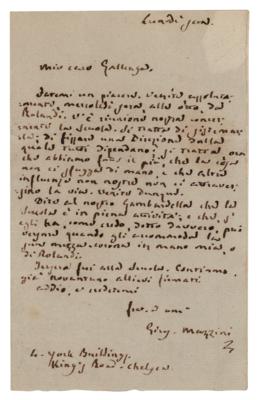 Lunedì sera.
Mio caro Gallenga,
Fatemi un piacere. Venite assoluta-
mente, mercoledì sera, alle otto, da
Rolandi. V'è riunione nostra concer-
nente la Scuola. Si tratta di sistemar-
la: di fissare una Direzione dalla
quale tutti dipendano: si tratta, ora
che abbiamo fatto il più, che la cosa
non ci sfugga di mano, e che altre
influenze non nostre non ci attraver-
sino la via. Venite dunque.
Dite al nostro Gambardella che la
Scuola è in piena attività; e che, s'
egli ha, come credo, detto davvero, può
versare quando gli accomoda la
sua mezza corona in mano mia, o
di Rolandi.
Iersera fui alla Scuola. Contiamo
già novantuno allievi firmati
addio, e credetemi
Gius. Mazzini
4. York Buildings
King's Road - Chelsea